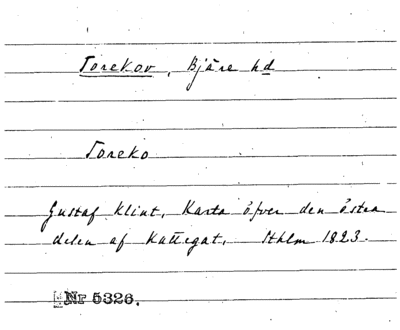 Torekov, Bjäre hd
Toreko
Gustaf Klint, Karta öfver den östra
delen af Kattegat, Sthlm 1823.
Nr 5326.